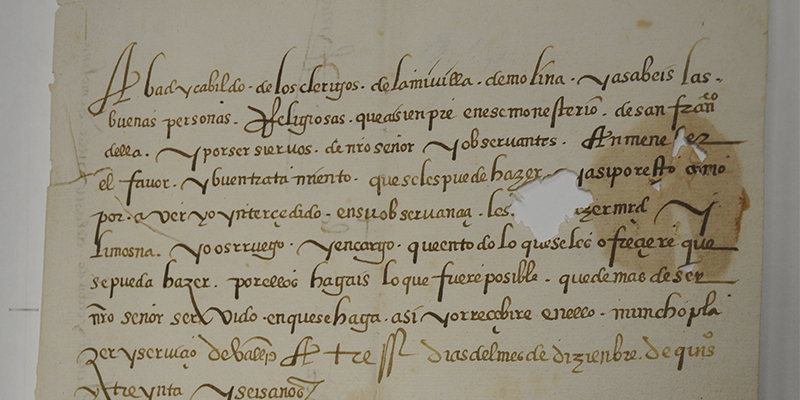 Abad y cabildo · de los clerigos · de la mi villa · de molina · ya sabeis las ·
buenas personas · Religiosas · que a sienpre en ese monesterio · de san fran^co
della · y por ser siervos · de nro señor y observantes ·
el favor · y buen tratamiento · que se les puede hazer y asi por esto como
por · aver yo ynterçedido · en su observançia · les zer mrd y
limosna · yo os rruego · y encargo · que en todo lo que se les ofreçere que
se pueda hazer · por ellos hagais lo que fuere posible · que demas de ser
nro señor servido · en que se haga · asi yo rreçebire en ello · muncho pla
zer y serviçio de A tress dias del mes de dizienbre · de quios
y treynta y seis años